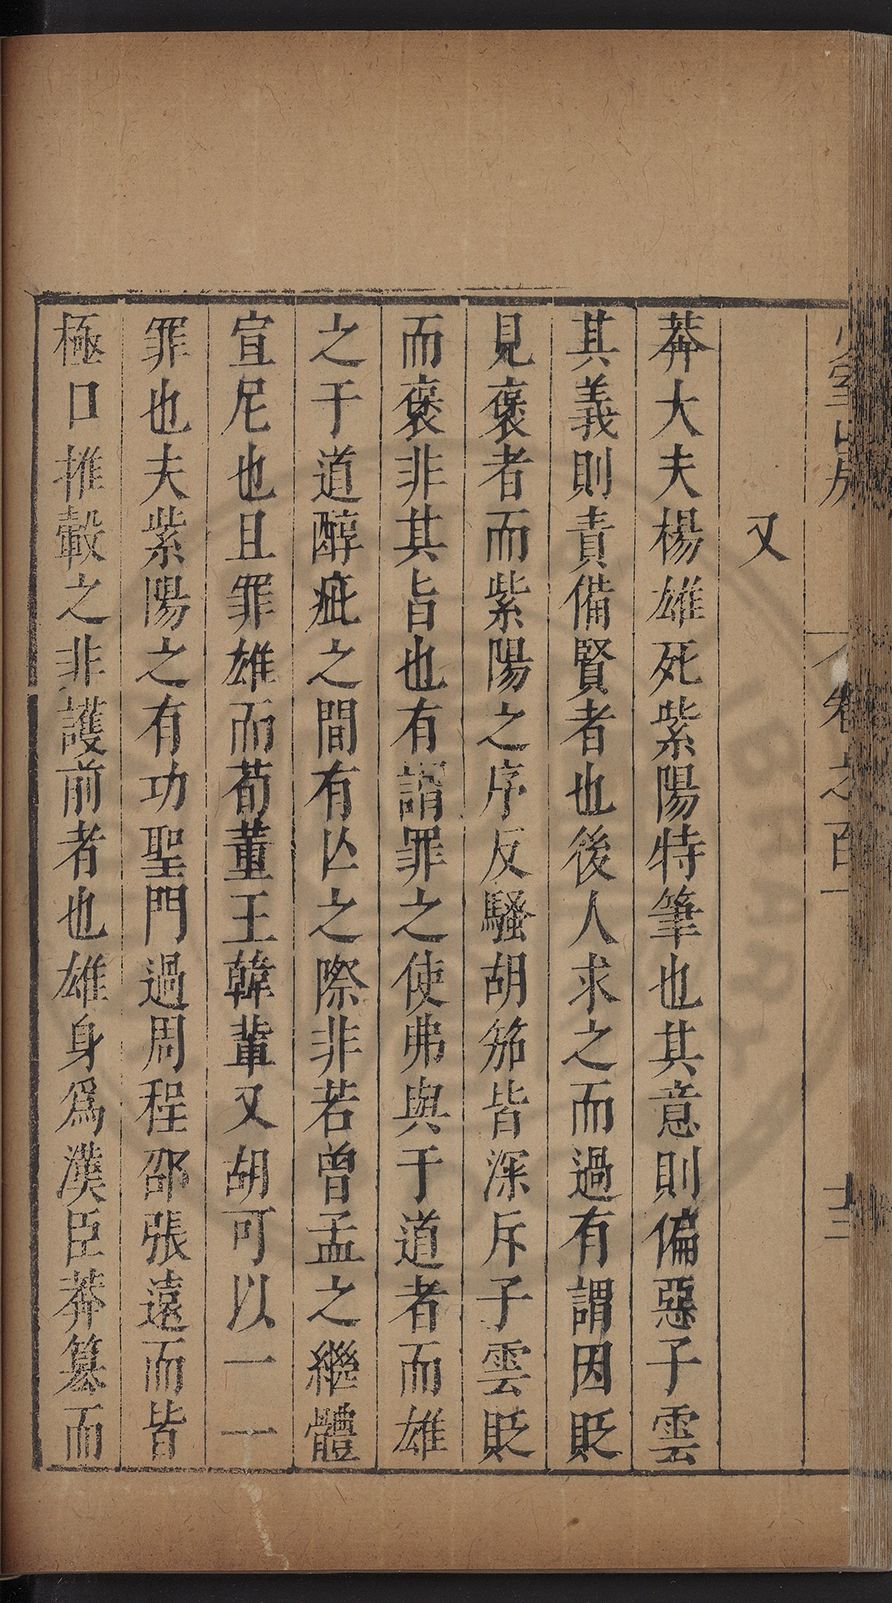 少室山房 卷之百一 十三
又
莽大夫楊雄死紫陽特筆也其意則偏惡子雲
其義則責備賢者也後人求之而過有謂因貶
見褒者而紫陽之序反騷胡笳皆深斥子雲貶
而褒非其旨也有謂罪之使弗與于道者而雄
之于道醇疵之間有亾之際非若曾孟之繼體
宣尼也且罪雄而荀董王韓軰又胡可以一一
罪也夫紫陽之有功聖門過周程邵張遠而皆
極口推轂之非護前者也雄身爲漢臣莽簒而